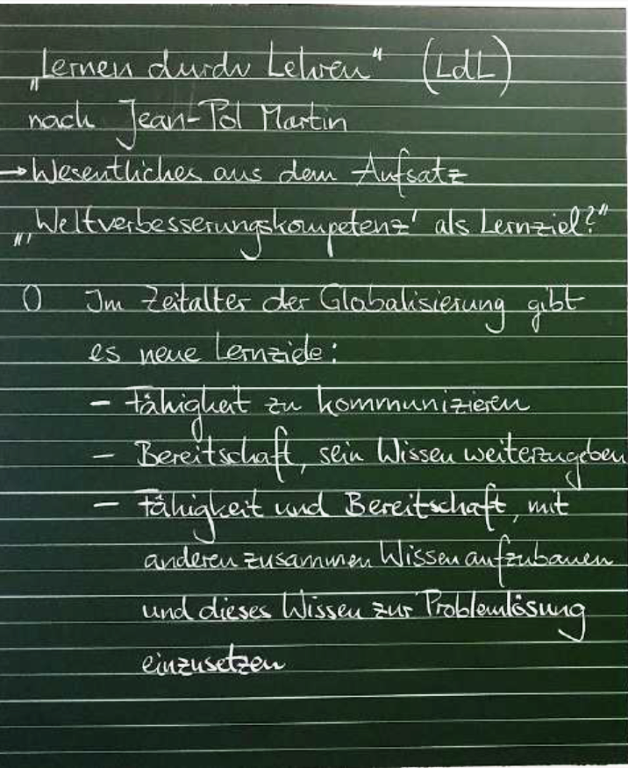 „Lernen durch Lehren" (LdL)
nach Jean-Pol Martin
→ Wesentliches aus dem Aufsatz
„‚Weltverbesserungskompetenz' als Lernziel?"
0 Im Zeitalter der Globalisierung gibt
es neue Lernziele:
- Fähigkeit zu kommunizieren
- Bereitschaft, sein Wissen weiterzugeben
- Fähigkeit und Bereitschaft, mit
anderen zusammen Wissen aufzubauen
und dieses Wissen zur Problemlösung
einzusetzen